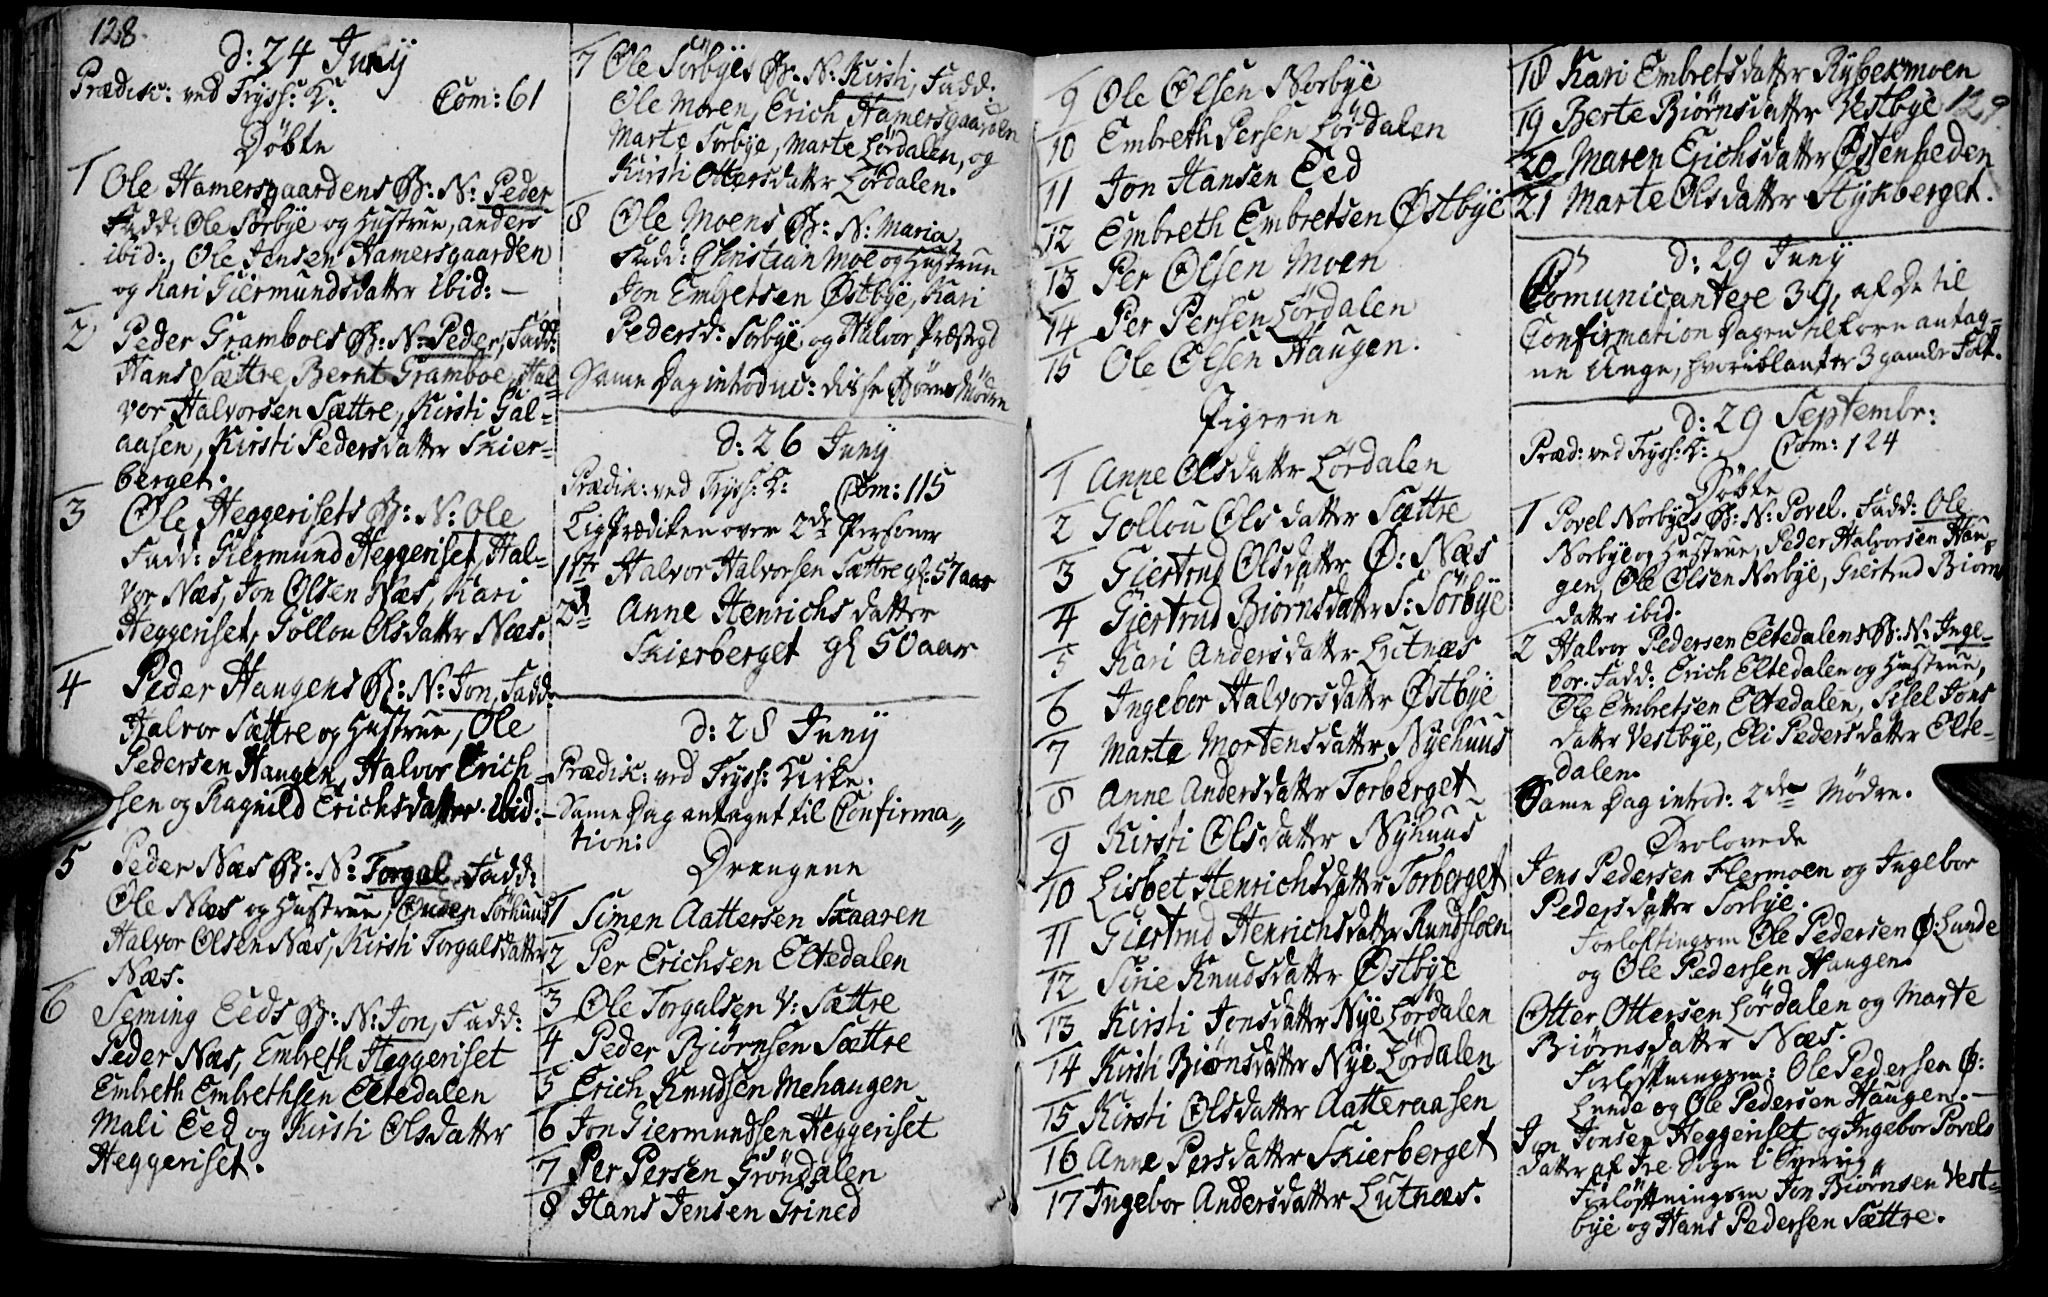 128.
d: 24 Junÿ
Prædik: ved Tryss: K: Com: 61
Döbte
1 Ole Hamersgaardens B: N: Peder
Fadd: Ole Sörbÿe og Hustrue, anders
ibid:, Ole Jensen Hamersgaarden
og Kari Giermundsdatter ibid: —
2 Peder Gramboes B: N: Peder, Fadd:
Hans Sættre, Bernt Gramboe, Hal-
vor Halvorsen Sættre, Kirsti Gal-
aasen, Kirsti Pedersdatter Skier-
berget.
3 Ole Heggerisets B: N: Ole
Fadd: Giermund Heggeriset, Hal-
vor Næs, Jon Olsen Næs, Kari
Heggeriset, Gollou Olsdatter Næs.
4 Peder Haugens B: N: Jon, Fadd:
Halvor Sættre og Hustrue, Ole
Pedersen Haugen, Halvor Erich-
sen og Ragnild Erichsdatter ibid:
5 Peder Næs B: N: Torgal Fadd:
Ole Næs og Hustrue, Sörhuus
Halvor Olsen Næs, Kirsti Torgalsdatter
Næs.
6 Seming Eeds B: N: Jon, Fadd:
Peder Næs, Embreth Heggeriset
Embreth Embrethsen Eltedalen
Mali Eed og Kirsti Olsdatter
Heggeriset.
7 Ole Sörbÿes B: N: Kirsti, Fadd:
Ole Moren, Erich Hamersgaarden
Marte Sorbÿe, Marte Lördalen, og
Kirsti Ottersdatter Lördalen.
8 Ole Moens B: N: Maria,
Fadd: Christian Moe og Hustrue
Jon Embretsen Östbÿe, Kari
Pedersd: Sorbÿe og Halvor Præstegd
Same Dag introduc: disse Börns Mödre
d: 26 Junÿ
Prædik: ved Tryss: K: Com: 115
LigPrædiken over 2de Personer
1ste Halvor Halvorsen Sættre gl: 57 aar
2de Anne Henrichs datter
Skierberget gl 50 aar
d: 28 Junÿ
Prædik: ved Tryss: Kirke:
Same Dag antaget til Confirma-
tion:
Drengene
1 Simen Aattersen Skaaren
2 Per Erichsen Eltedalen
3 Ole Torgalsen V: Sættre
4 Peder Biörnsen Sættre
5 Erich Knudsen Mehaugen
6 Jon Giermundsen Heggeriset
7 Per Persen Gröndalen
8 Hans Jensen Grined
9 Ole Olsen Norbÿe
10 Embreth Persen Lördalen
11 Jon Hansen Eed
12 Embreth Embretsen Østbÿe
13 Per Olsen Moen
14 Per Persen Lördalen
15 Ole Olsen Haugen.
Pigerne
1 Anne Olsdatter Lördalen
2 Gollou Olsdatter Sættre
3 Giertrud Olsdatter Ø: Næs
4 Giertrud Biornsdatter S: Sörbÿe
5 Kari Andersdatter Lutnæs
6 Ingebor Halvorsdatter Østbÿe
7 Marte Mortensdatter Nÿehuus
8 Anne Andersdatter Torberget
9 Kirsti Olsdatter Nÿhuus
10 Lisbet Henrichsdatter Torberget
11 Giertrud Henrichsdatter Rundfloen
12 Sirie Knudsdatter Østbÿe
13 Kirsti Jonsdatter Nÿe Lördalen
14 Kirsti Biönsdatter Nÿe Lördalen
15 Kirsti Olsdatter Aatteraasen
16 Anne Persdatter Skierberget
17 Ingebor Andersdatter Lutnæs.
18 Kari Embretsdatter Rÿsekmoen
129
19 Berte Biørnsdatter Vestbÿe
20 Maren Erichsdatter Østenheden
21 Marte Olsdatter Stÿkberget.
d: 29 Junÿ
Comunicantere 39, af De til
Confirmation Dagen tilforn antag-
ne Unge, hvoriblanter 3 gamle Folk.
d: 29 Septembr:
Præd: ved Tryss: K: Com: 124
Döbte
1 Povel Norbÿes B: N: Povel. Fadd: Ole
Norbÿe og Hustrue, Peder Halvorsen Hau-
gen, Ole Olsen Norbÿe, Giertrud Biorns
datter ibid.
2 Halvor Pedersen Eltedalens B: N: Inge-
bor. Fadd: Erich Eltedalen og Hustrue,
Ole Embretsen Eltedalen, Sisel Jons
datter Vestbÿe, Eli Pedersdatter Elte-
dalen.
Same Dag introd: 2de Mödre.
Trolovede
Jens Pedersen Flermoen og Ingebor
Pedersdatter Sorbÿe.
Forloftingsm Ole Pedersen Ø: Lunde
og Ole Pedersen Haugen.
Otter Ottersen Lördalen og Marte
Biörnsdatter Næs.
Forlöftningsm: Ole Pedersen Ø:
Lunde og Ole Pedersen Haugen. —
Jon Jonsen Heggeriset og Ingebor Povels
datter af Sogn i Sverrig
Forlöftningsm Jon Biörnsen Vest-
bÿe og Hans Pedersen Sættre.